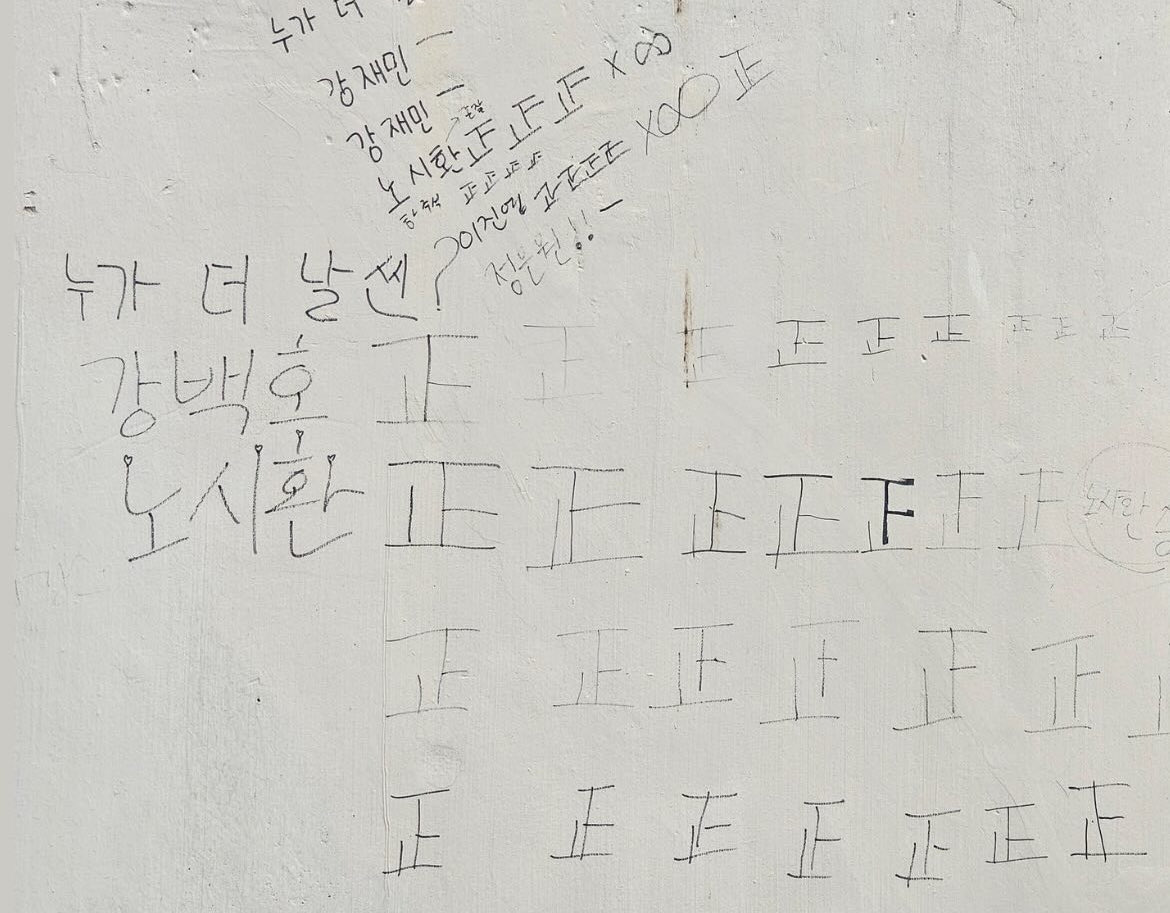 누가 더
강재민 一
강재민 一
노시환 正 正 正 × ∞
正 正 正 正
이진영 正 正 正 正 ×∞ 正
정은원!! 一
누가 더 날쎈?
강백호 正 正 正 正 正 正 正 正 正
노시환 正 正 正 正 正 正 正 노시환
正 正 正 正 正 正
正 正 正 正 正 正 正